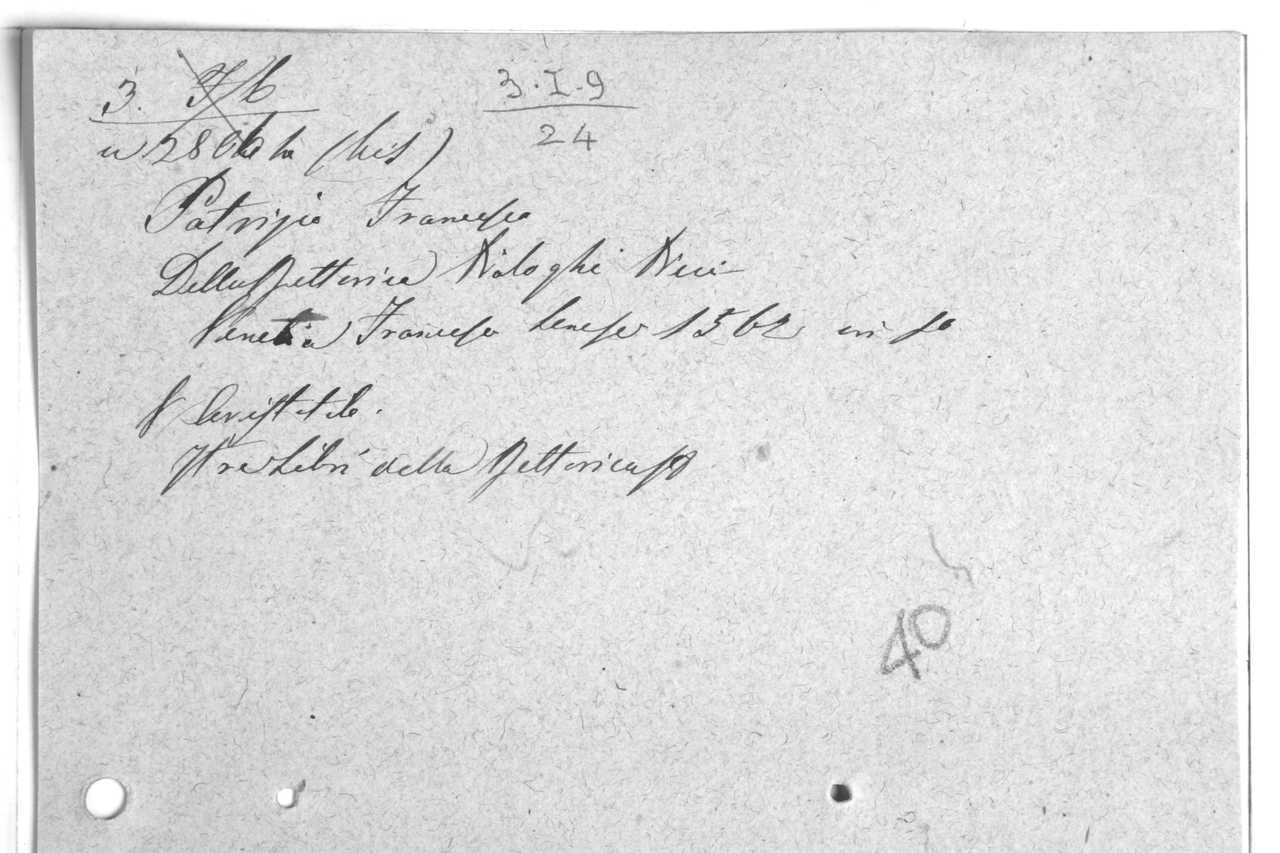 3. 7/b
3.I.9
24
(bis)
Patrizio Francesco
Della Rettorica Dialoghi Dieci
Venetia Francesco Senese 1562 in fo
Aristotele.
tre Libri della Rettorica
40